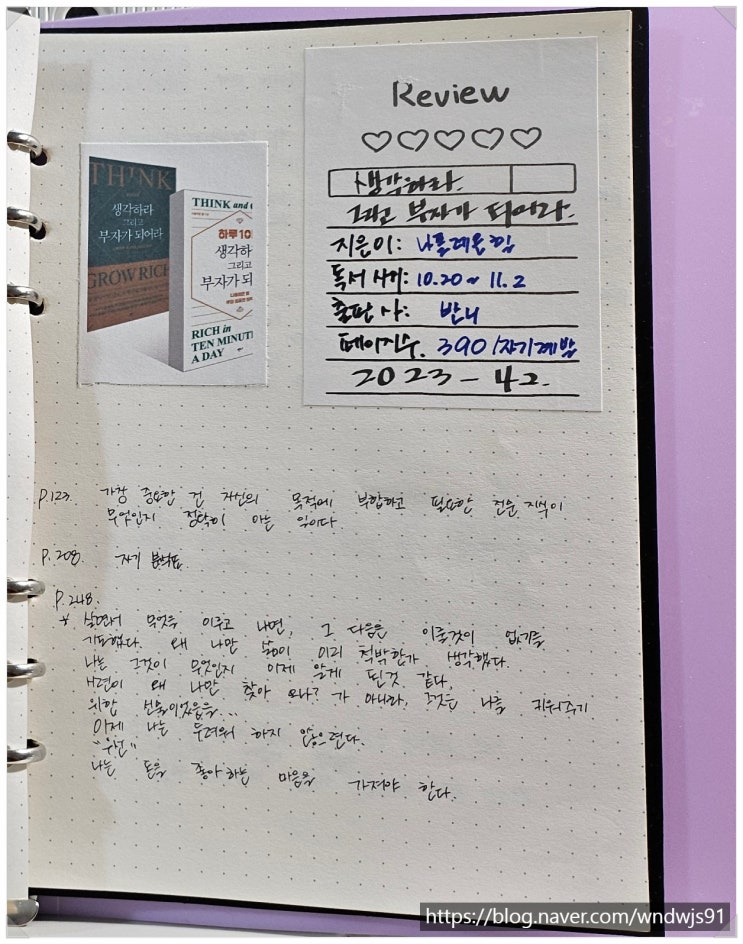 THINK
생각하라
그리고
부자가 되어라
GROW RICH
THINK and
하루 10
생각하
그리고
부자가 되
RICH in
TEN MINUT
A DAY
Review
생각하라.
그리고 부자가 되어라.
지은이: 나폴레온 힐
독서 시기: 10.20~ 11.2
출판사: 반니
페이지수. 390 /자기계발
2023 - 42.
P.123. 가장 중요한 건 자신의 목적에 부합하고 필요한 전문 지식이
무엇인지 정확히 아는 일이다
P.208. 자기 분석표
P.248.
* 살면서 무엇을 이루고 나면, 그 다음은 이룰것이 없기를
기도했다. 왜 나만 삶이 이리 척박한가 생각했다.
나는 그것이 무엇인지 이제 알게 된것 같다,
시련이 왜 나만 찾아 오나? 가 아니라, 그것은 나를 키워주기
위한 선물이었음을...
이제 나는 두려워 하지 않으련다.
"우선"
나는 돈을 좋아하는 마음을 가져야 한다.
https://blog.naver.com/wndwjs91